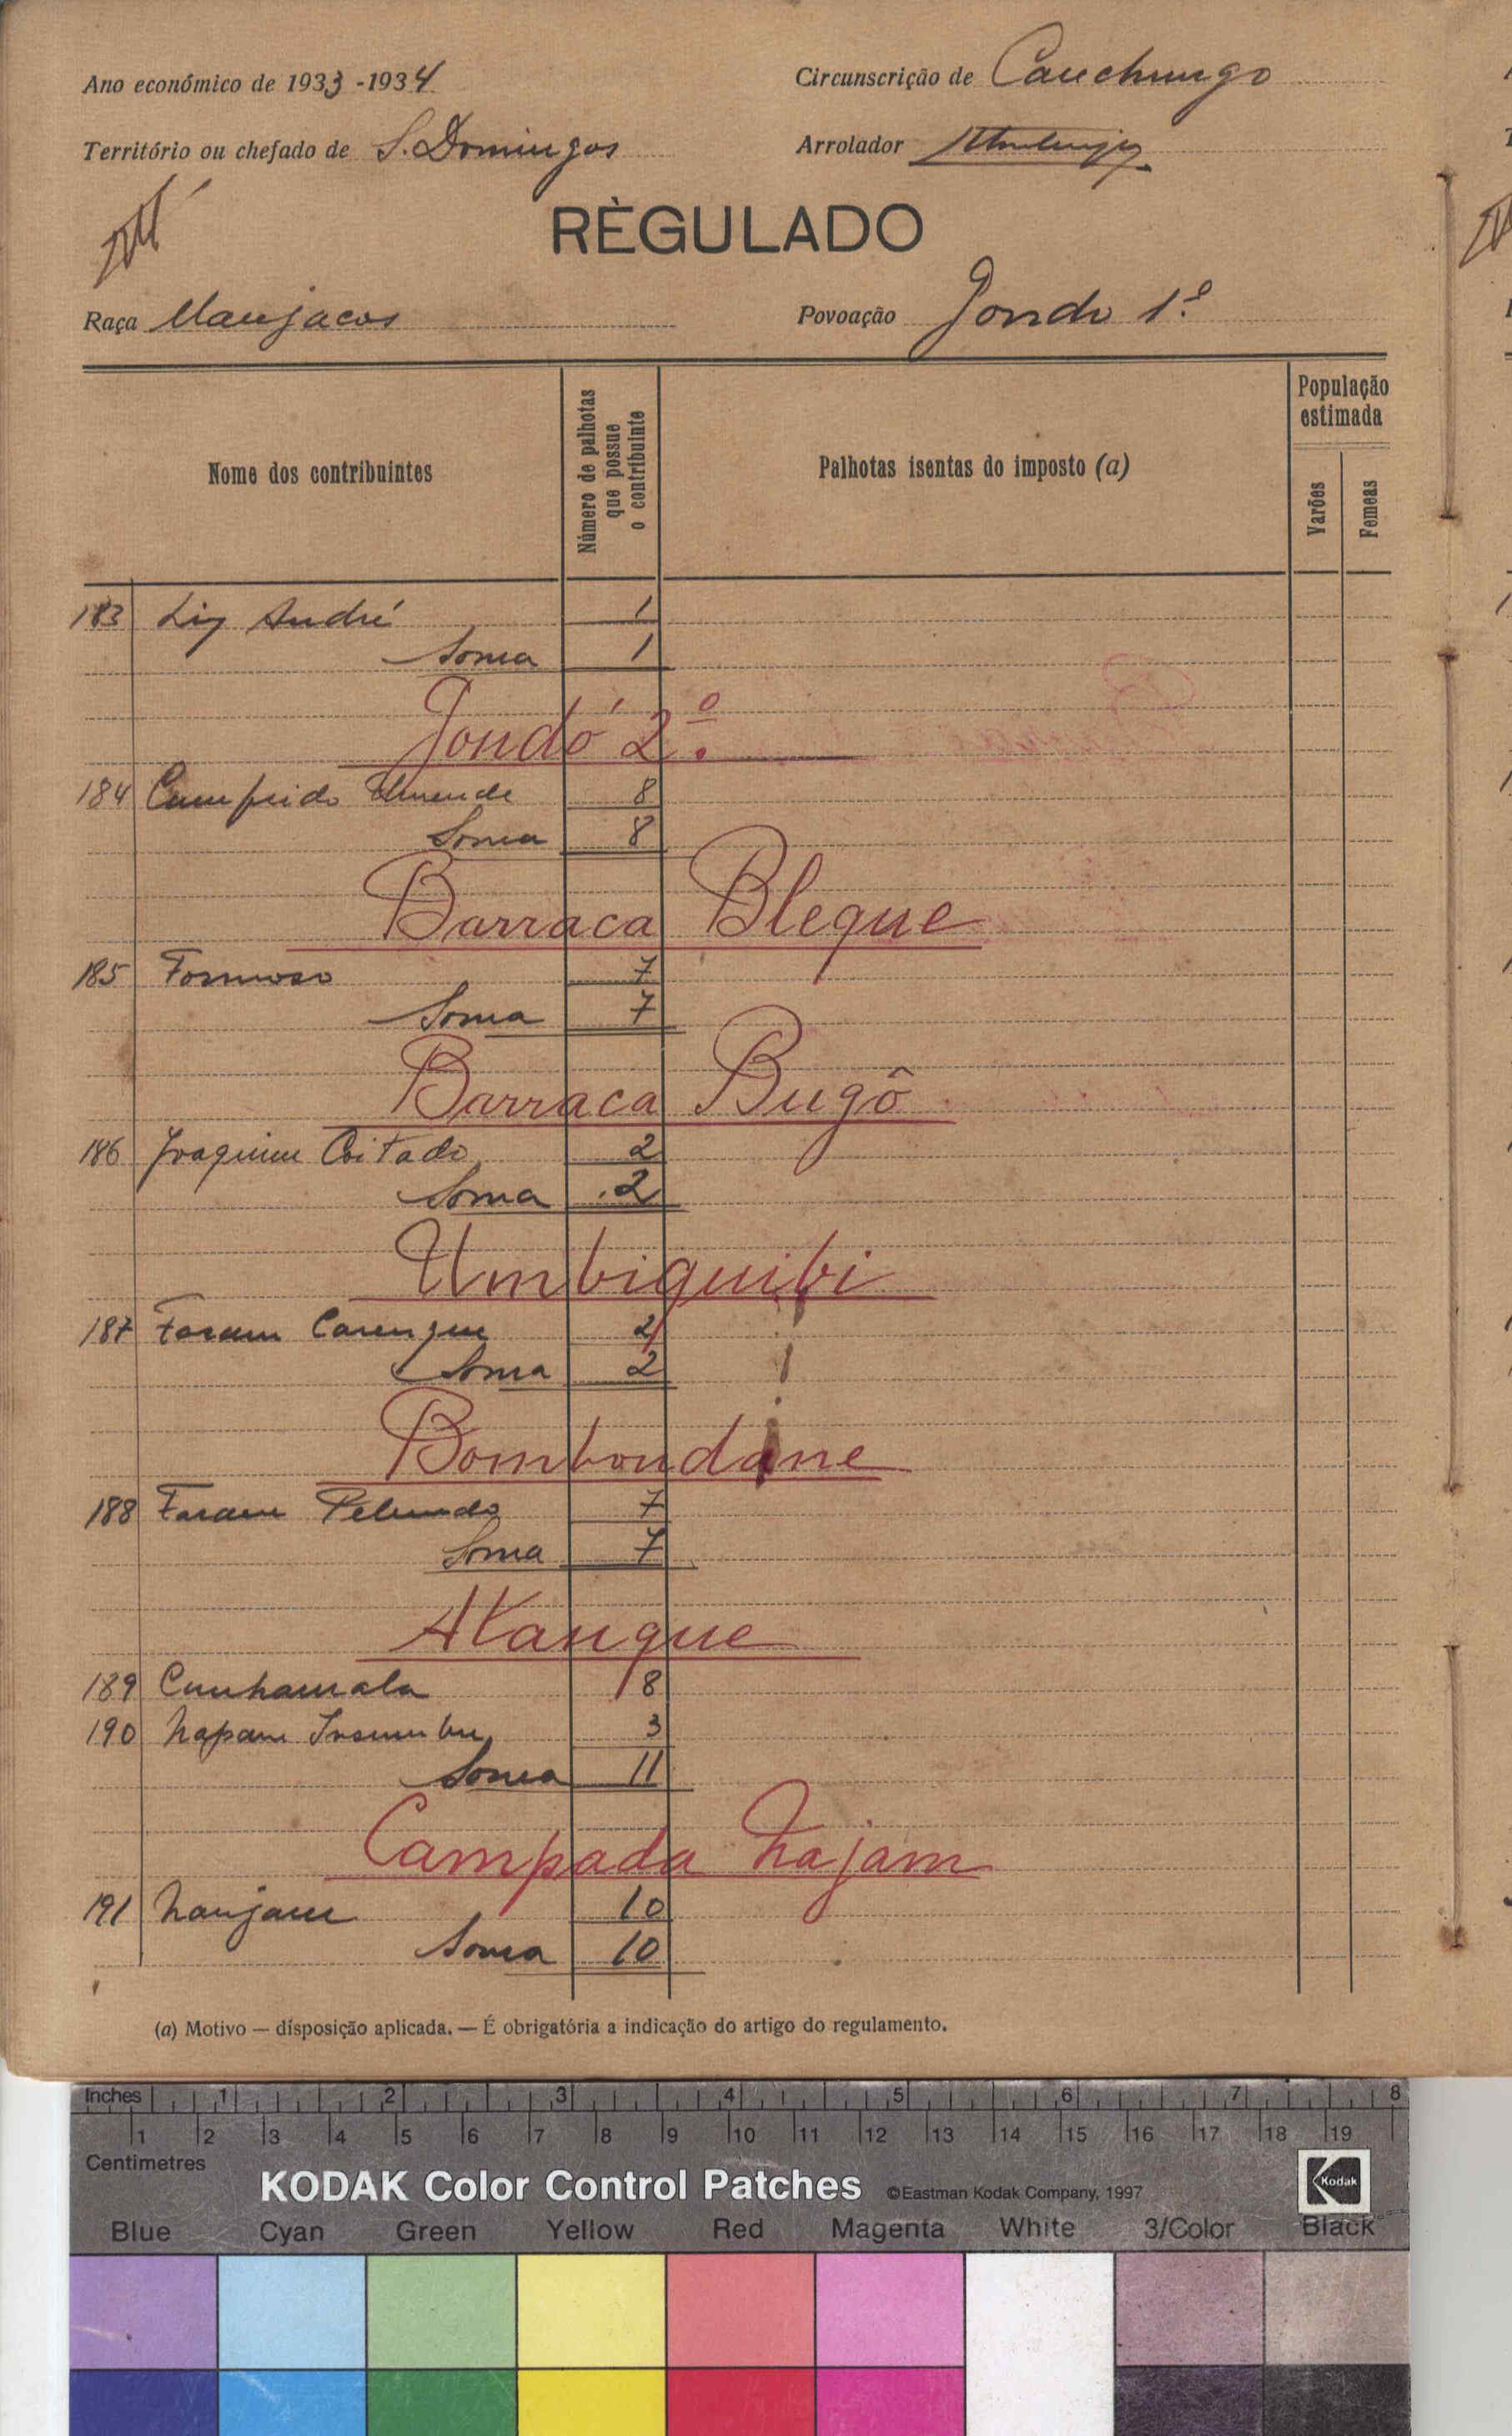 Ano económico de 1933-1934
Circunscrição de Cauchungo
Território ou chefado de S. Domingos
Arrolador
RÈGULADO
Raça Manjacos
Povoação Jondo 1º
Nome dos contribuintes
Número de palhotas que possue o contribuinte
Palhotas isentas do imposto (a)
População estimada
Varões
Femeas
183 Liz André 1
Soma 1
Jondó 2º.
184 8
Soma 8
Barraca Bleque
185 Formoso 7
Soma 7
Barraca Bugô
186 Joaquim Coitado 2
Soma 2
Umbiquibi
187 Faram 2
Soma 2
Bombondane
188 Faram Pelundo 7
Soma 7
Atangue
189 Cunhamala 8
190 Napam 3
Soma 11
Campada Najam
191 Naujam 10
Soma 10
(a) Motivo — disposição aplicada. — É obrigatória a indicação do artigo do regulamento.
Inches 1 2 3 4 5 6 7 8
1 2 3 4 5 6 7 8 9 10 11 12 13 14 15 16 17 18 19
Centimetres
KODAK Color Control Patches ©Eastman Kodak Company, 1997 Kodak
Blue Cyan Green Yellow Red Magenta White 3/Color Black